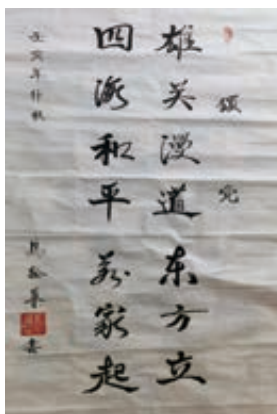 颂党
雄英漫道东方立
四海和平万家起
壬寅年仲秋
书